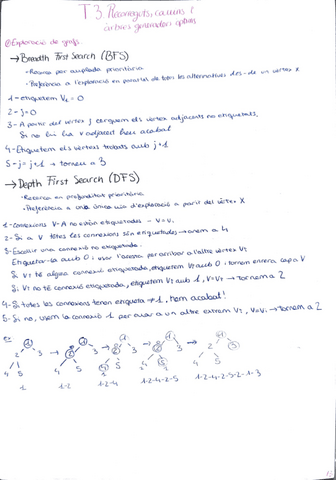 T3. Recorreguts, camins i
arbres generadors òptims
① Exploració de grafs
→ Breadth First Search (BFS)
- Recerca per amplada prioritària
- Preferència a l'exploració en paral·lel de totes les alternatives des de un vèrtex X
1- etiquetem Vx = 0
2- j = 0
3- A partir del vèrtex j elegim els vèrtex adjacents no etiquetats.
Si no hi ha v adjacent hem acabat
4- Etiquetem els vèrtexs trobats amb j+1
5- j = j+1 → tornem a 3
→ Depth First Search (DFS)
- Recerca en profunditat prioritària
- Preferència a una única via d'exploració a partir del vèrtex X
1- Connexions V-A no están etiquetades - V=Vx
2- Si a V totes les connexions són etiquetades → anem a 4
3- Escollir una connexió no etiquetada.
Etiquetar-la amb 0; usar l'aresta per arribar a l'altre vèrtex Vt
Si Vt té alguna connexió etiquetada, etiquetem Vt amb 0; tornem enrera cap a V
Si Vt no té connexió etiquetada, etiquetem Vt amb 1, V=Vt → tornem a 2
4- Si totes les connexions tenen etiqueta ≠ 1, hem acabat!
5- Si no, usem la connexió 1 per anar a un altre extrem Vt, V=Vt → Tornem a 2
ex
1 → 1 → 1 → 1 → 1
2 3 2 3 2 3 2 3 2 3
4 5 4 5 4 5 4 5 4 5
1 1-2 1-2-4 1-2-4-2-5 1-2-4-2-5-2-1-3